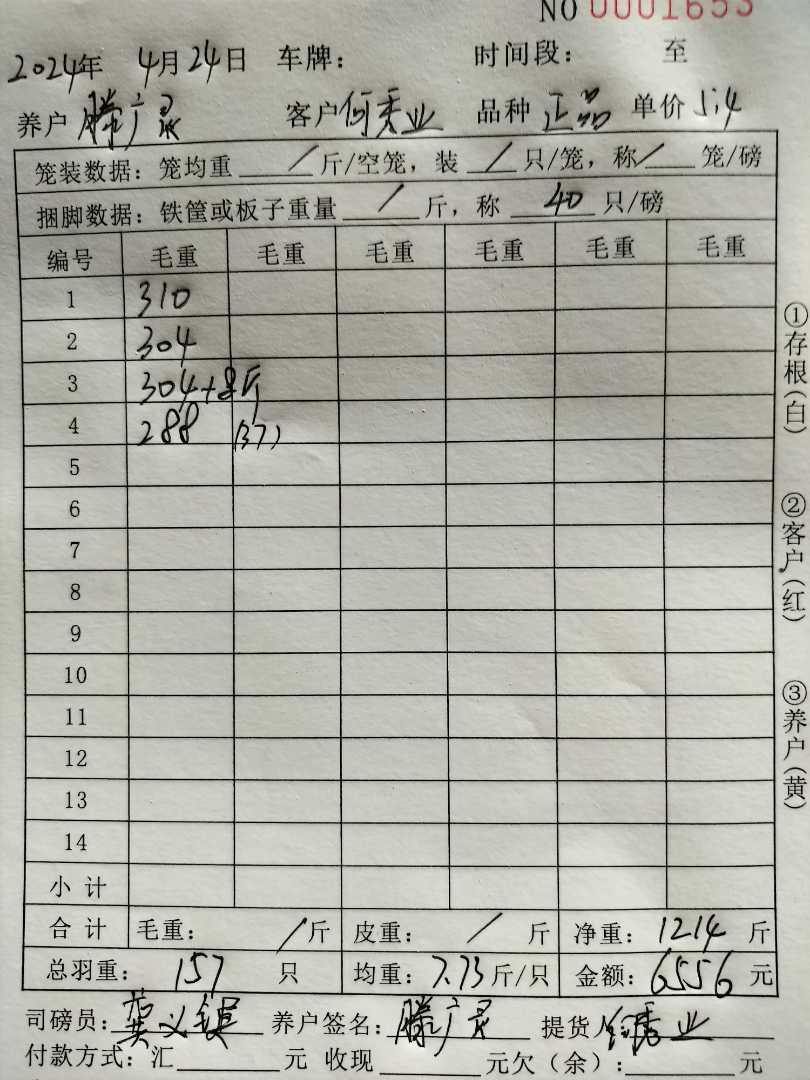 NO 0001653
2024年 4月24日 车牌： 时间段： 至
养户 滕广灵 客户 何秀业 品种 正品 单价 5.4
笼装数据：笼均重 / 斤/空笼，装 / 只/笼，称 / 笼/磅
捆脚数据：铁筐或板子重量 / 斤，称 40 只/磅
编号 毛重 毛重 毛重 毛重 毛重 毛重
1 310
2 304
3 304+8斤
4 288 (37)
5
6
7
8
9
10
11
12
13
14
小计
合计 毛重： / 斤 皮重： / 斤 净重：1214 斤
总羽重： 157 只 均重：7.73斤/只 金额：6556 元
司磅员： 养户签名：滕广灵 提货人 何秀业
付款方式：汇 元 收现 元欠（余）: 元
①存根(白)
②客户(红)
③养户(黄)